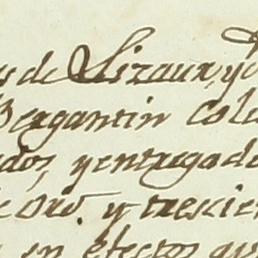 de Lizaur, y d
Bergantin Col
dos, y entregad
oro. y trescie
en efectos qu